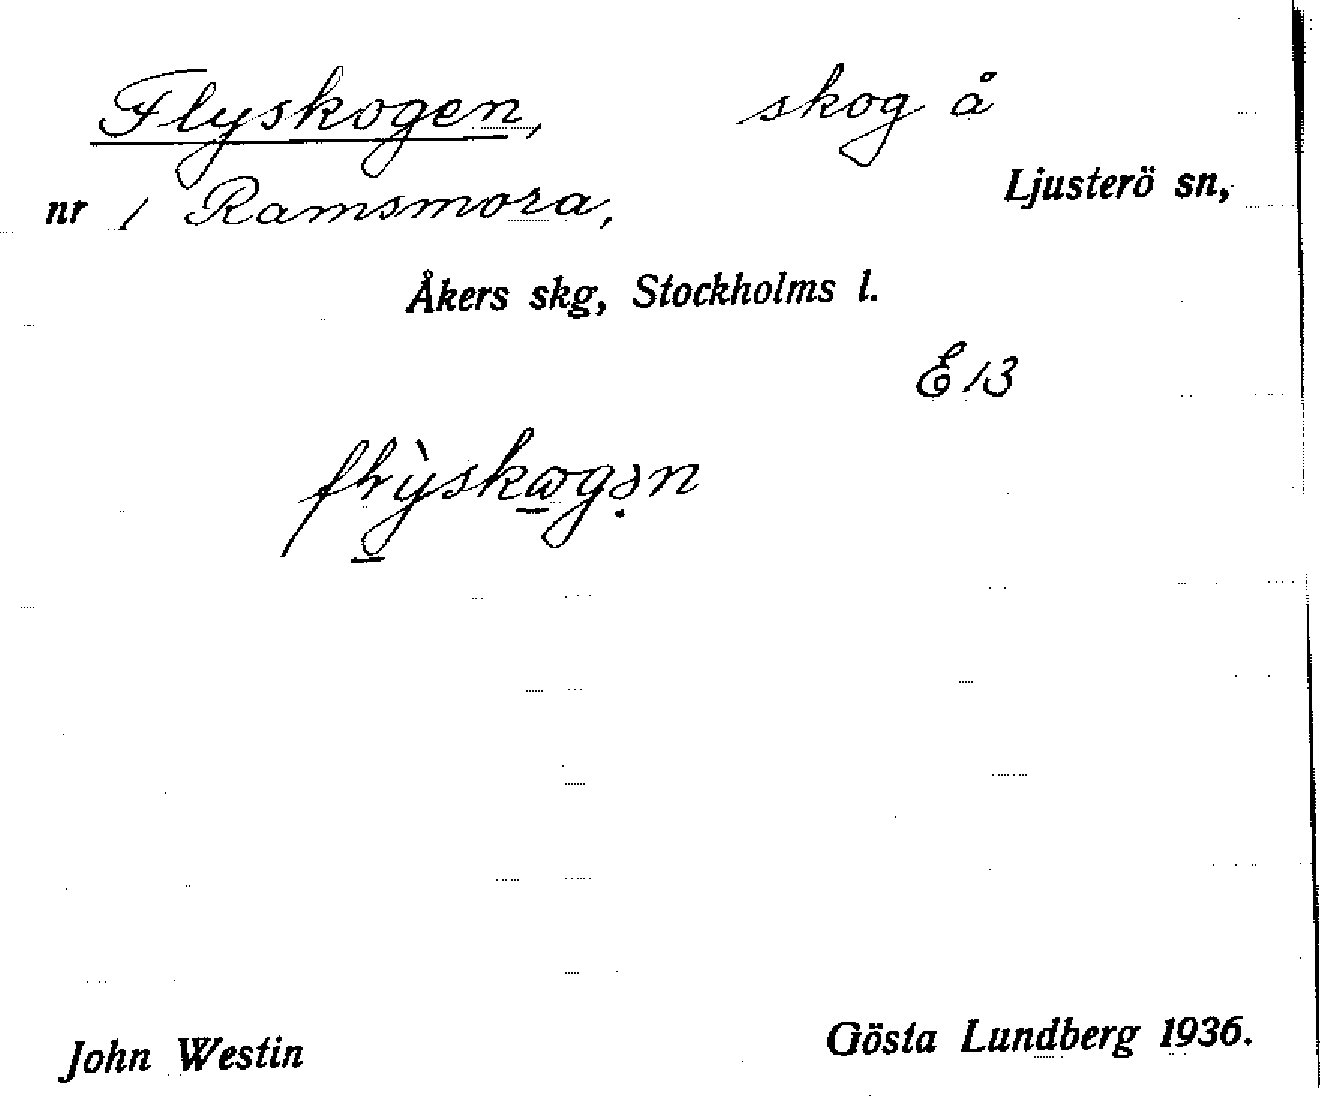 Flyskogen, skog å
nr 1 Ramsmora, Ljusterö sn,
Åkers skg, Stockholms l.
E 13
John Westin Gösta Lundberg 1936.